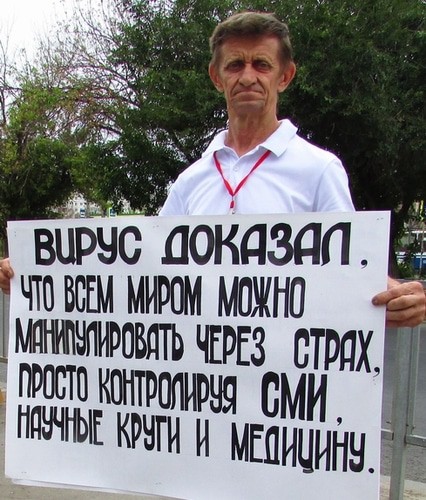 ВИРУС ДОКАЗАЛ,
ЧТО ВСЕМ МИРОМ МОЖНО
МАНИПУЛИРОВАТЬ ЧЕРЕЗ СТРАХ,
ПРОСТО КОНТРОЛИРУЯ СМИ,
НАУЧНЫЕ КРУГИ И МЕДИЦИНУ.